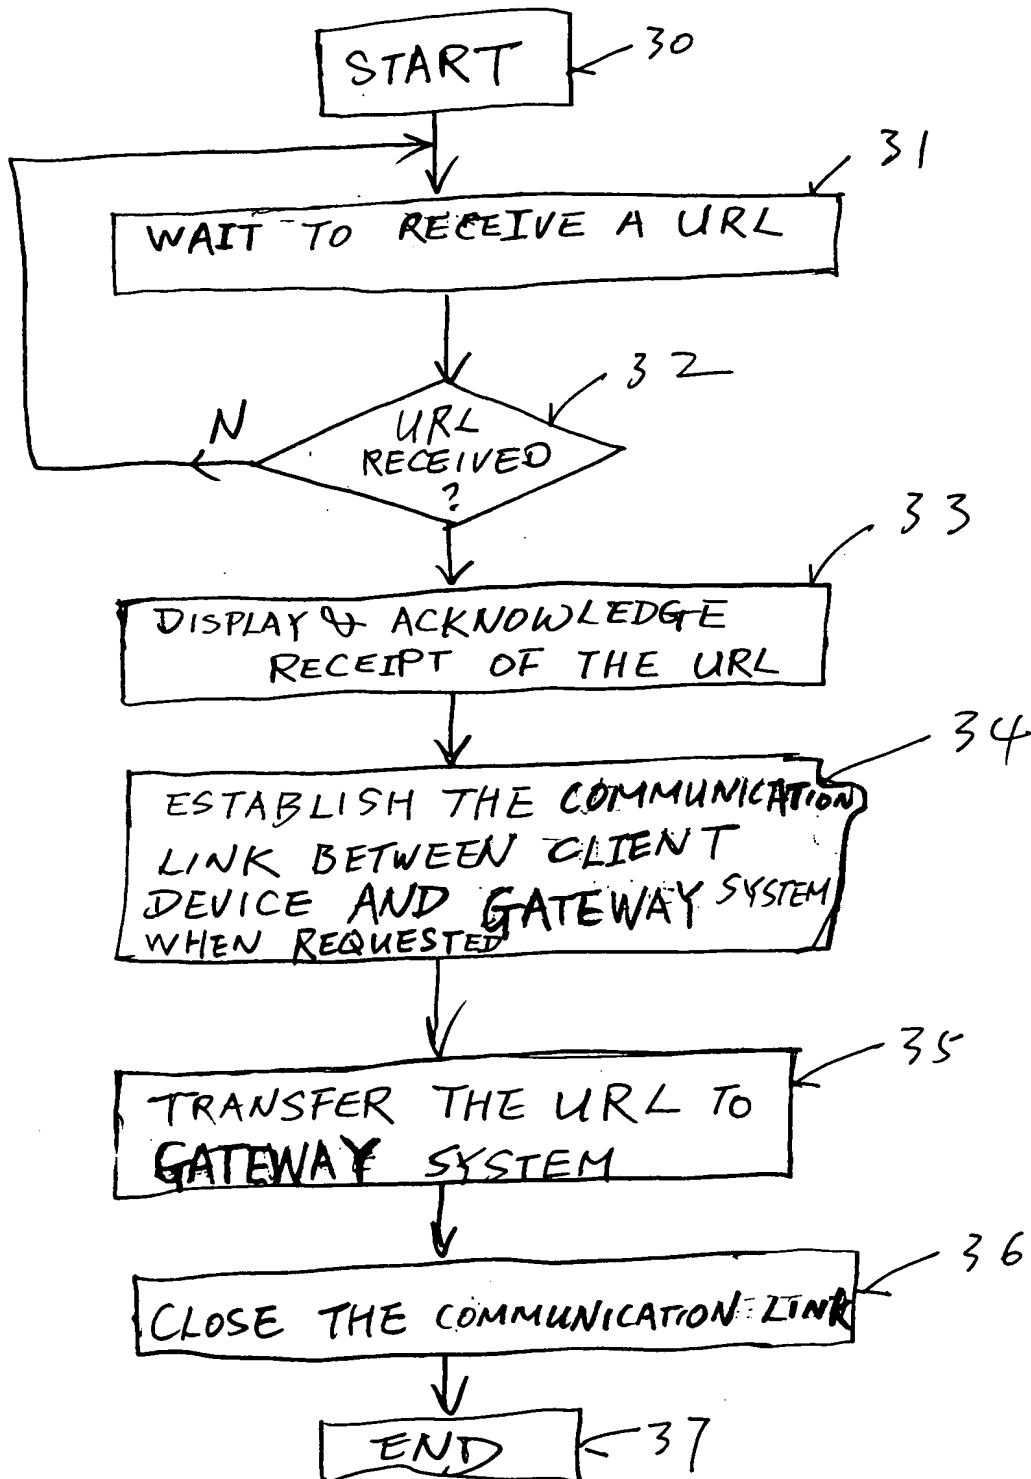 START
30
31
WAIT TO RECEIVE A URL
32
N
URL
RECEIVED
?
33
DISPLAY & ACKNOWLEDGE
RECEIPT OF THE URL
34
ESTABLISH THE COMMUNICATION
LINK BETWEEN CLIENT
DEVICE AND GATEWAY SYSTEM
WHEN REQUESTED
35
TRANSFER THE URL TO
GATEWAY SYSTEM
36
CLOSE THE COMMUNICATION LINK
END
37